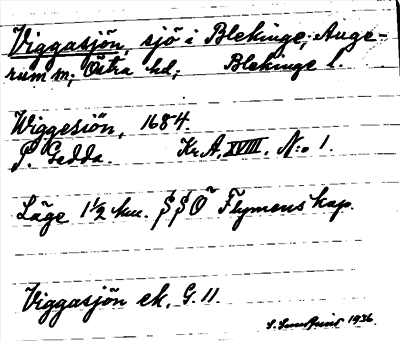 Viggasjön, sjö i Blekinge, Auge-
rum sn; Östra hd; Blekinge l.
Wiggesiön, 1684.
P. Gedda. Kr. A. XVIII. N:o 1.
Läge 1 1/2 km. SSO Flymens kap.
Viggasjön ek. G 11.
1936